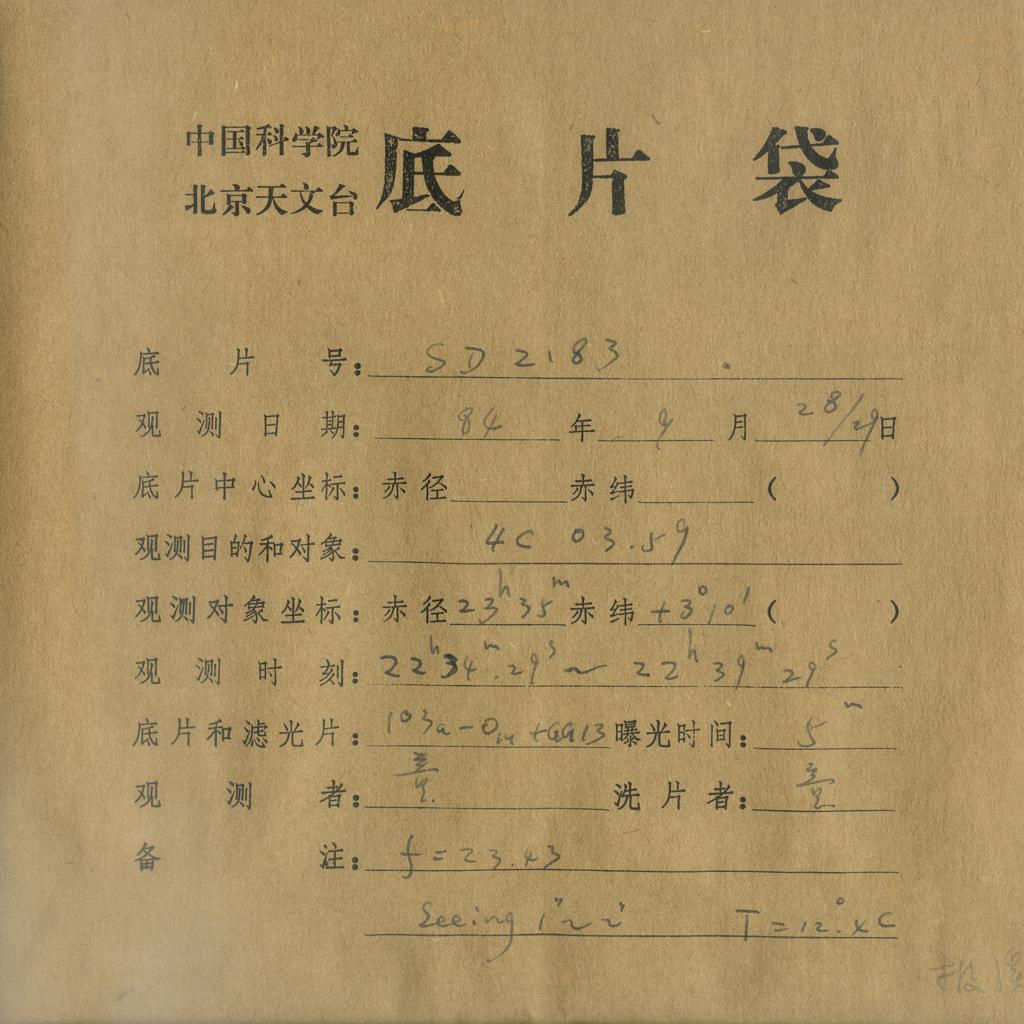 中国科学院
北京天文台
底片袋
底片号: SD 2183
观测日期: 84 年 9 月 28/29 日
底片中心坐标: 赤径 赤纬 ( )
观测目的和对象: 4C 03.59
观测对象坐标: 赤径 23h 35m 赤纬 +3°10' ( )
观测时刻: 22h 34m 29s ~ 22h 39m 29s
底片和滤光片: 103a-O +GG13 曝光时间: 5m
观测者: 洗片者:
备注: f=23.43
Seeing 1"~2" T=12°. C